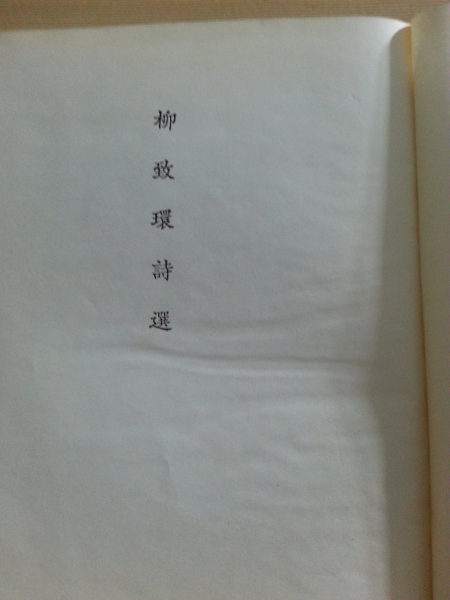 柳致環詩選